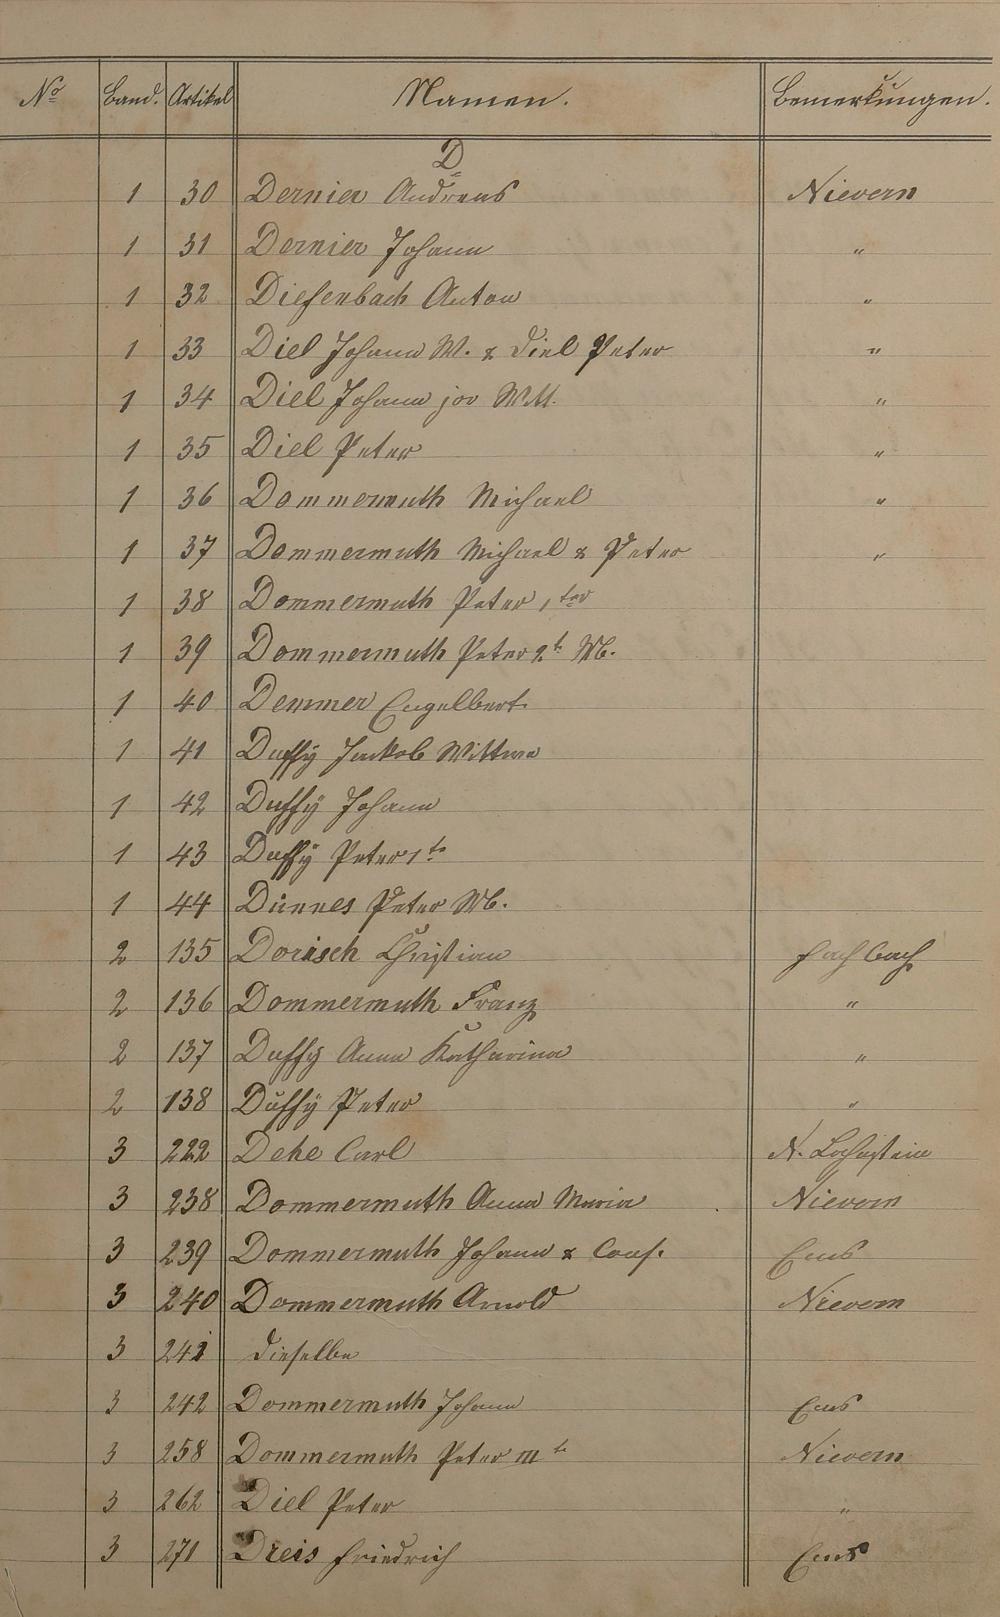 No Band. Artikel Namen. Bemerkungen.
D
1 30 Dernier Andreas Nievern
1 31 Dernier Johann "
1 32 Diefenbach Anton "
1 33 Diel Johann W. & Diel Peter "
1 34 Diel Johann jor Witt. "
1 35 Diel Peter "
1 36 Dommermuth Michael "
1 37 Dommermuth Michael & Peter "
1 38 Dommermuth Peter 1ter
1 39 Dommermuth Peter 2t Wb.
1 40 Demmer Engelbert.
1 41 Duffÿ Jackob Wittwe
1 42 Duffÿ Johann
1 43 Duffÿ Peter 1te
1 44 Dünnes Peter Wb.
2 135 Dorisch Christian Fachbach
2 136 Dommermuth Franz "
2 137 Duffy Anna Katharina "
2 138 Duffÿ Peter "
3 222 Dehe Carl N. Lahnstein
3 238 Dommermuth Anna Maria Nievern
3 239 Dommermuth Johann & Cons. Ems
3 240 Dommermuth Arnold Nievern
3 241 dieselbe
3 242 Dommermuth Johann Ems
3 258 Dommermuth Peter III te Nievern
3 262 Diel Peter "
3 271 Dreis Friedrich Ems